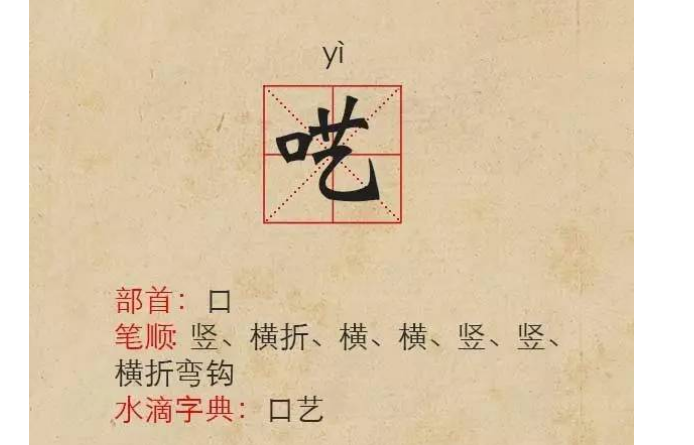 yì
呓
部首：口
笔顺：竖、横折、横、横、竖、竖、
横折弯钩
水滴字典：口艺